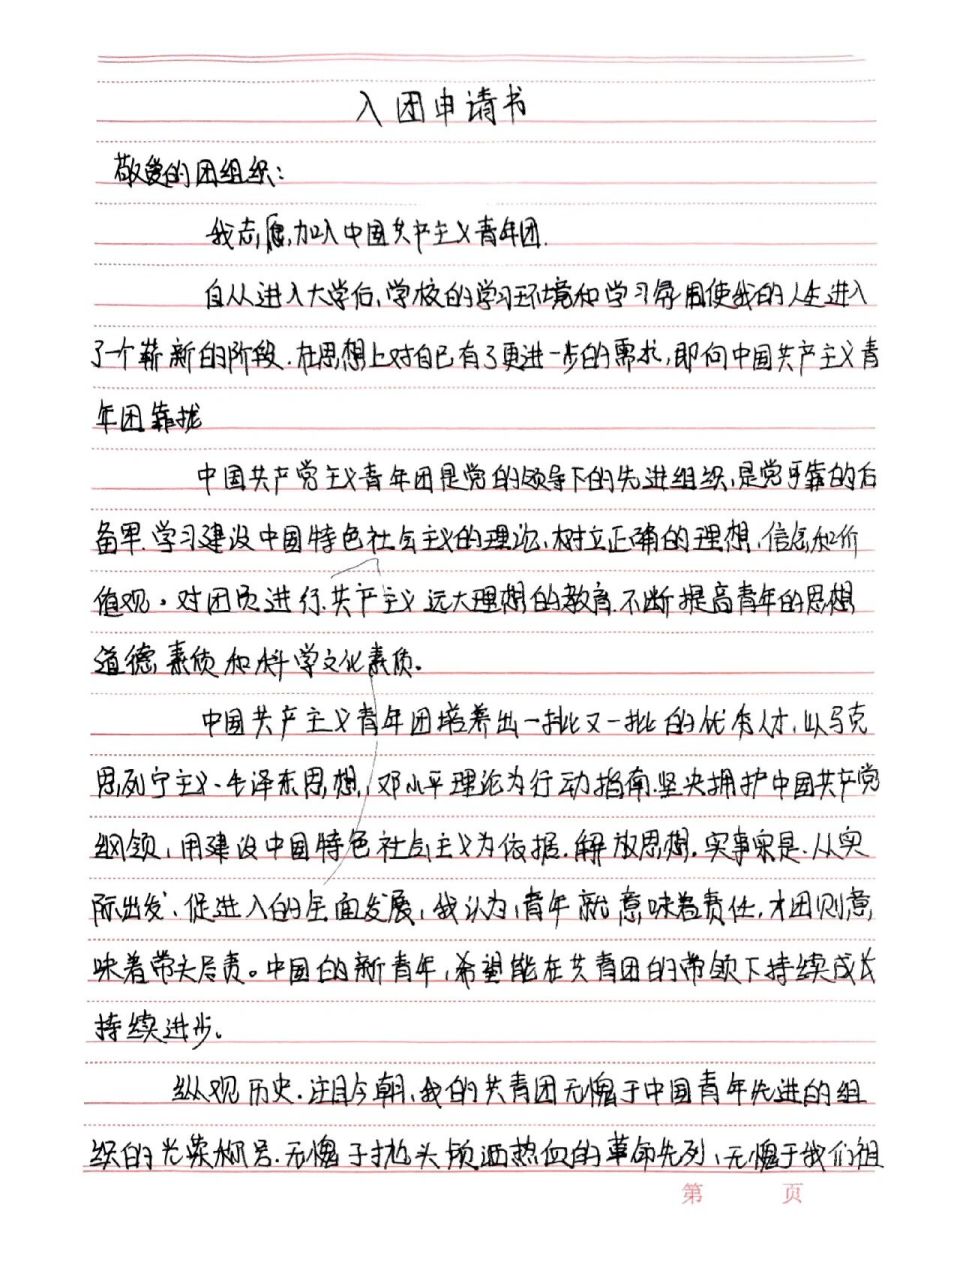 入团申请书
敬爱的团组织：
我志愿加入中国共产主义青年团.
自从进入大学后,学校的学习环境和学习氛围使我的人生进入
了一个崭新的阶段.在思想上对自己有了更进一步的需求,即向中国共产主义青
年团靠拢
中国共产党主义青年团是党的领导下的先进组织,是党可靠的后
备军.学习建设中国特色社会主义的理论,树立正确的理想,信念和价
值观。对团员进行共产主义远大理想的教育.不断提高青年的思想
道德素质和科学文化素质。
中国共产主义青年团培养出一批又一批的优秀人才,以马克
思列宁主义、毛泽东思想,邓小平理论为行动指南.坚决拥护中国共产党
纲领,用建设中国特色社会主义为依据.解放思想.实事求是.从实
际出发、促进入的全面发展,我认为,青年就意味着责任,才团则意
味着带头启责。中国的新青年,希望能在共青团的带领下持续成长
持续进步。
纵观历史.注目今朝,我的共青团无愧于中国青年先进的组
织的光荣称号.无愧于抛头颅洒热血的革命先列,无愧于我们祖
第 页